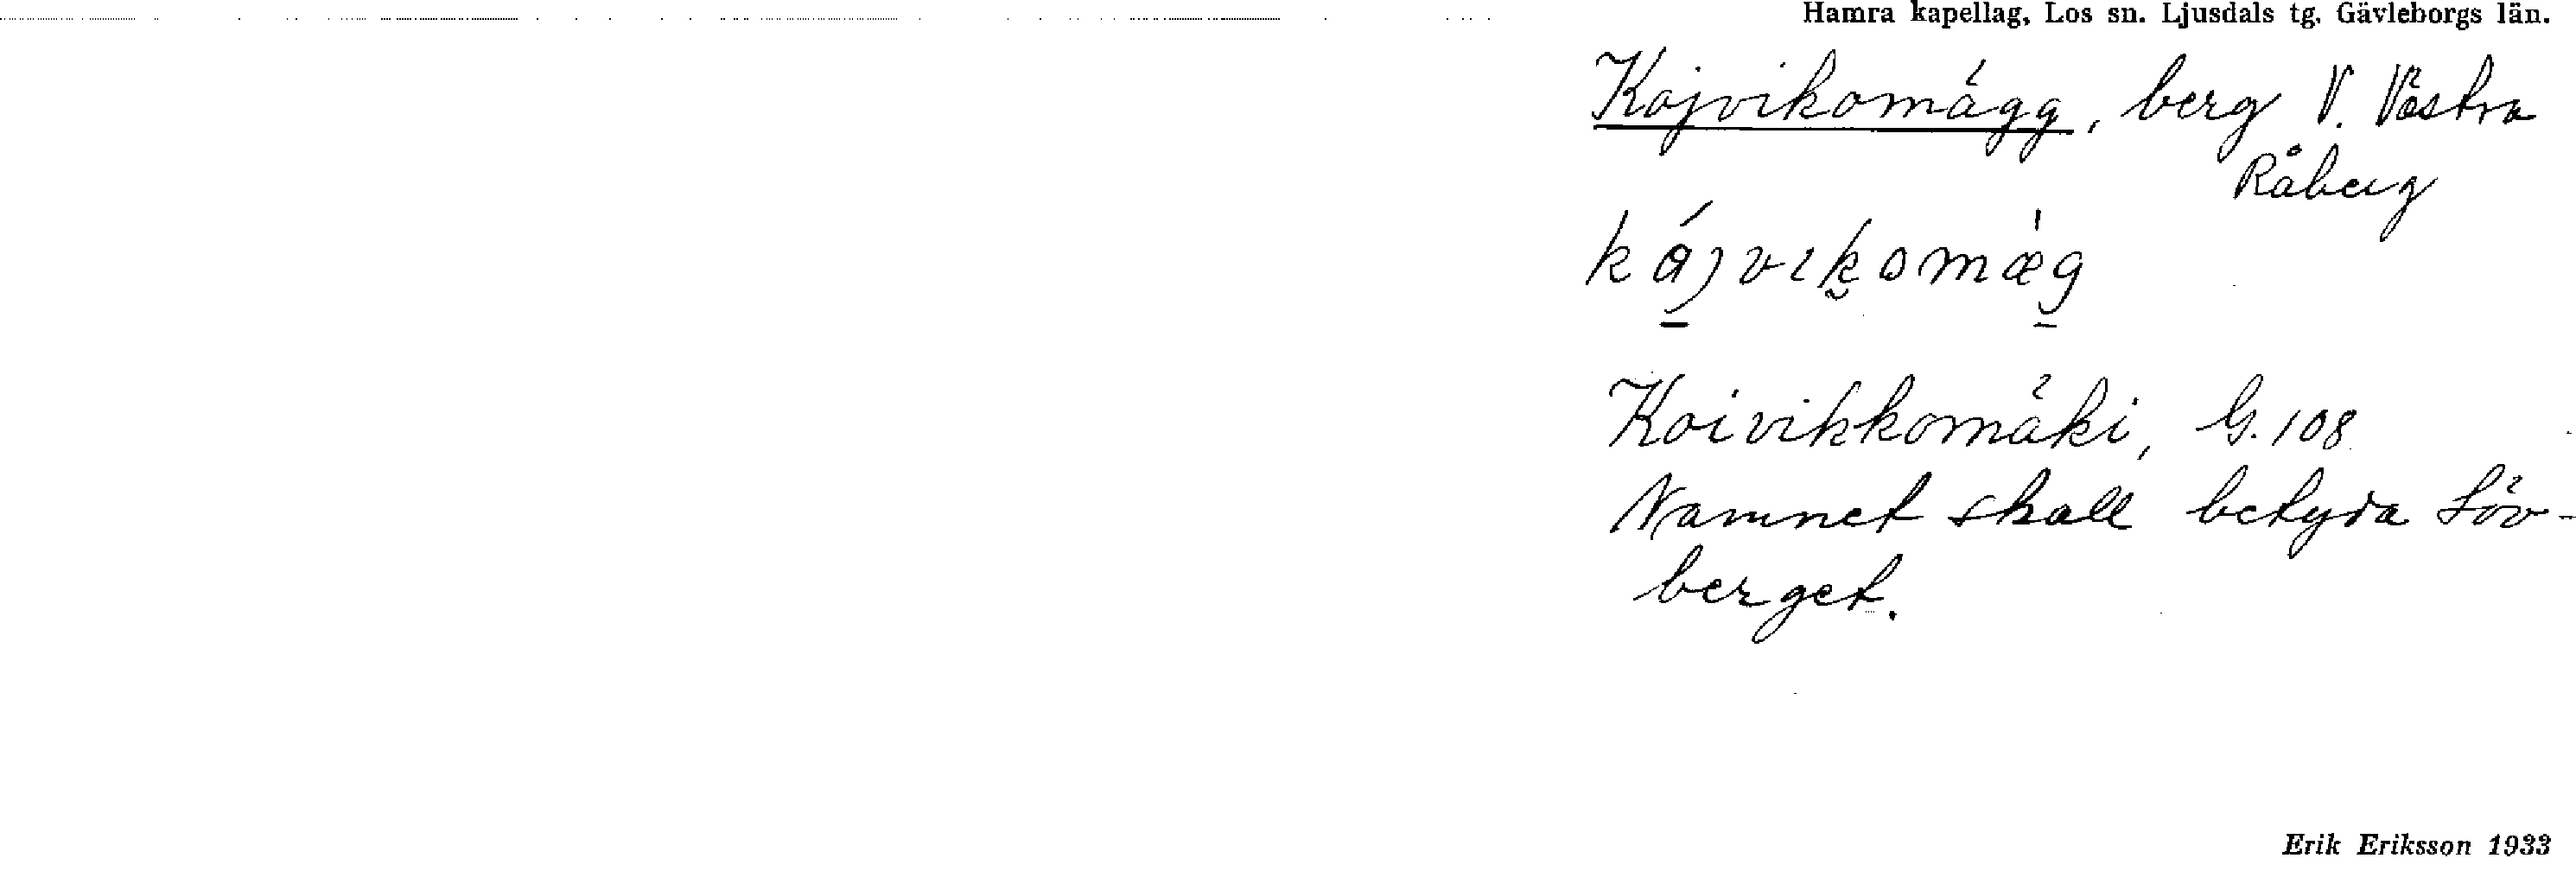 Hamra kapellag, Los sn. Ljusdals tg. Gävleborgs län.
Kojvikomägg, berg V. Västra
Råberg
kájvikomæ̀g
Koivikkomäki, G. 108
Namnet skall betyda Löv-
berget.
Erik Eriksson 1933